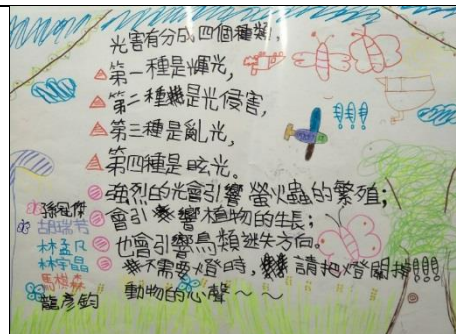 光害有分成四個種類，
第一種是輝光，
第二種是光侵害，
第三種是亂光，
第四種是眩光。
強烈的光會引響螢火蟲的繁殖；
會引響植物的生長；
也會引響鳥類迷失方向。
不需要燈時，請把燈關掉!!!
動物的心聲～～
孫冠傑
胡瑞芳
林孟凡
林宇晶
馬棋森
龍彥鈞